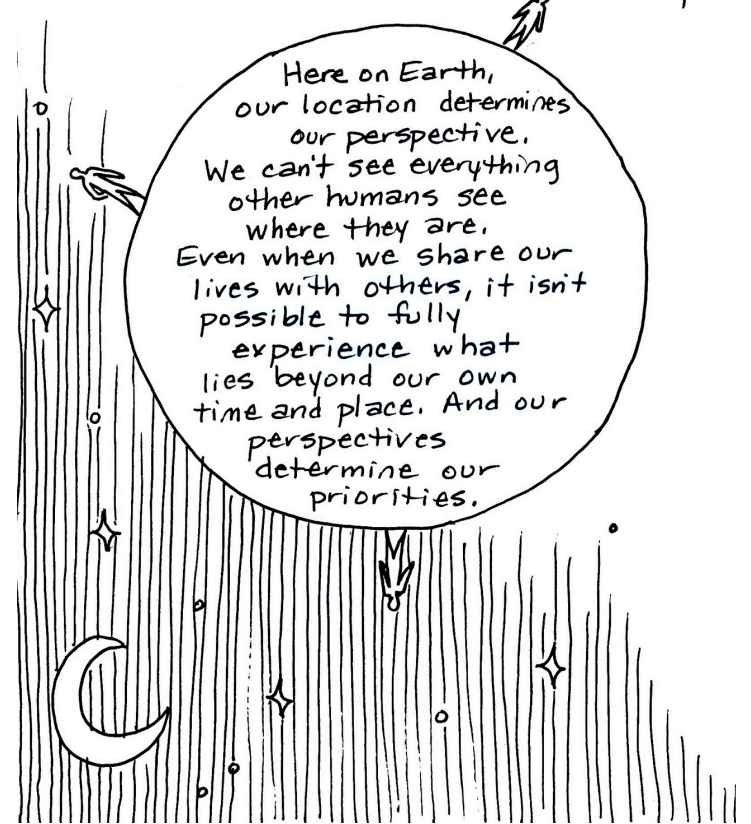 Here on Earth,
our location determines
our perspective.
We can't see everything
other humans see
where they are.
Even when we share our
lives with others, it isn't
possible to fully
experience what
lies beyond our own
time and place. And our
perspectives
determine our
priorities.